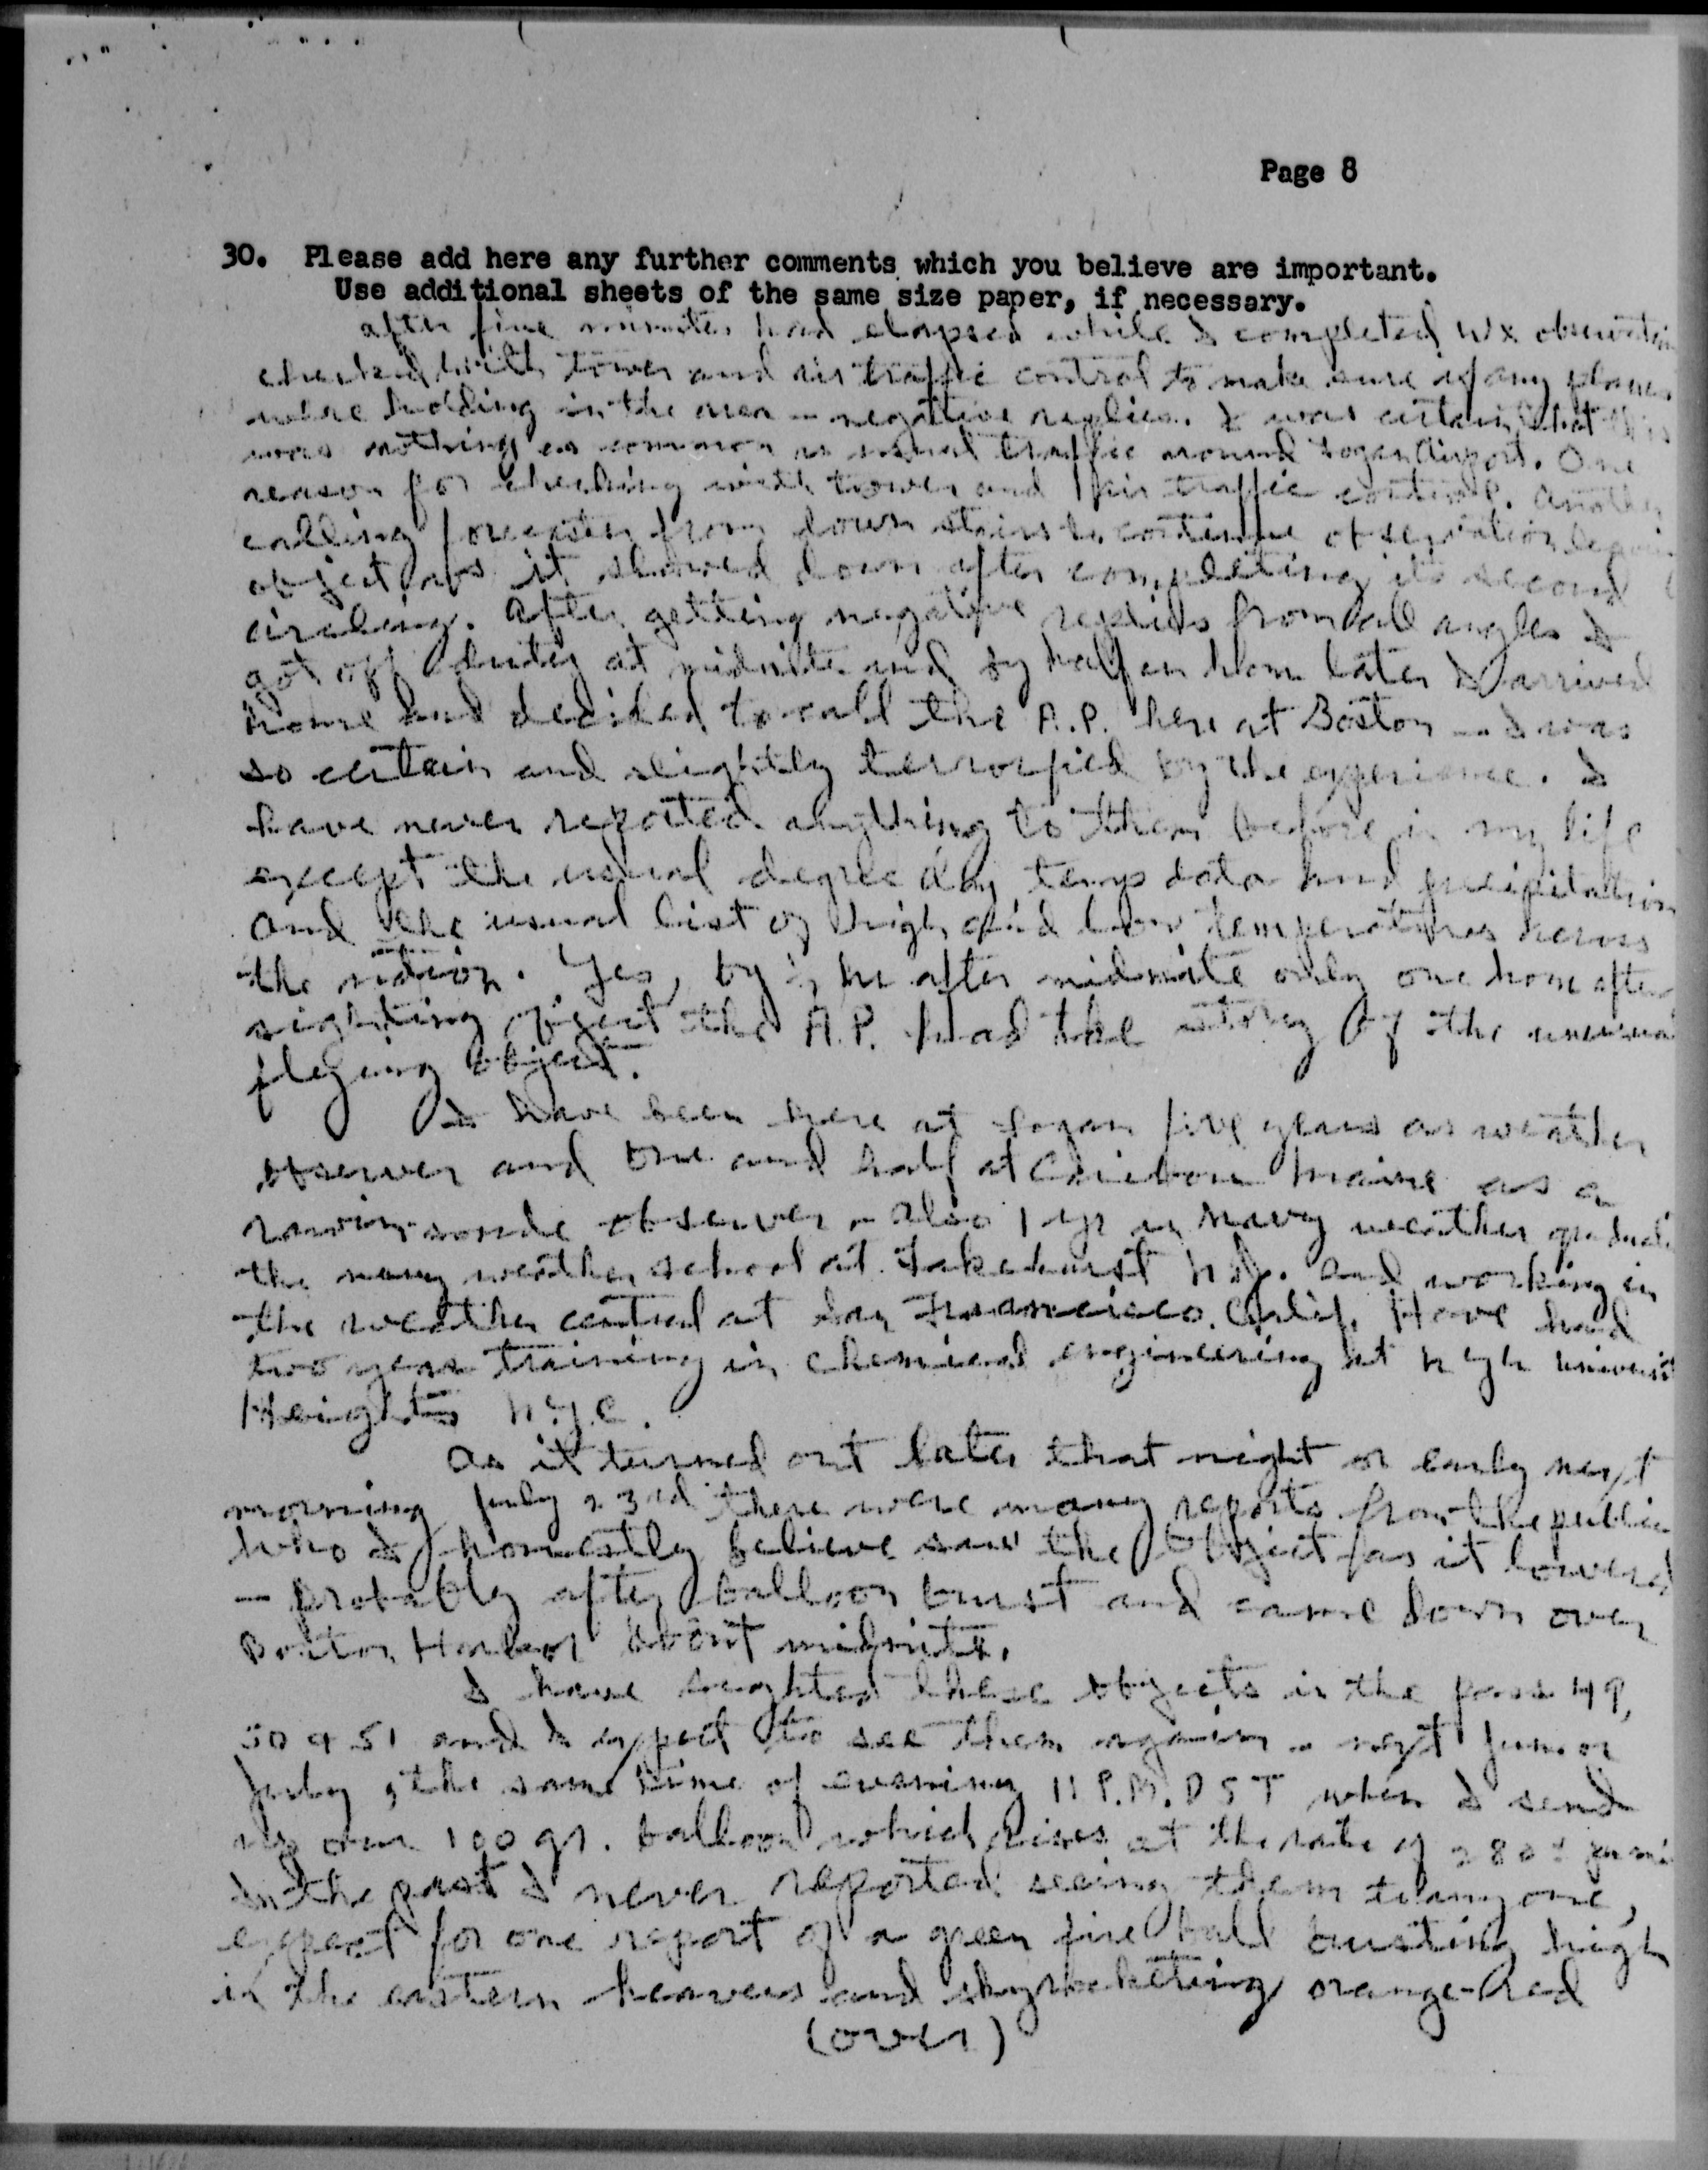 Page 8
30. Please add here any further comments which you believe are important.
Use additional sheets of the same size paper, if necessary.
after five minutes had elapsed while I completed Wx
checked with tower and air traffic control to make sure if any planes
were holding in the area - negative replies. I was certain that this
was nothing as common as usual traffic around Logan Airport. One
reason for checking with tower and air traffic control. Another
calling forecaster from down stairs to continue observation
object as it slowed down after completing its second
circling. After getting negative replies from all angles I
got off duty at midnite and by half an hour later I arrived
home and decided to call the A.P. here at Boston - I was
so certain and slightly terrorfied by the experience. I
have never reported anything to them before in my life
except the usual degree day temp data and precipitation
and the usual list of high and low temperatures across
the nation. Yes, by ½ hr after midnite only one hour after
sighting object the A.P. had the story of the
flying object.
I have been here at Logan five years as weather
observer and one and half at Caribou Maine as a
rawin-sonde observer - also 1 yr in Navy weather
the navy weather school at Lakehurst N.J. and working in
the weather central at San Francisco. Calif. Have had
two years training in chemical engineering at N.Y.U.
Heights N.Y.C.
As it turned out later that night or early next
morning July 23rd there were many reports from the public
who I honestly believe saw the object as it lowered
- probably after balloon burst and came down over
Boston Harbor about midnite.
I have sighted these objects in the past 49,
50 & 51 and I expect to see them again - next June or
July, the same time of evening 11 P.M. DST when I send
up our 100 gr. balloon which rises at the rate of
In the past I never reported seeing them to anyone,
expect for one report of a green fire ball bursting high
in the eastern heavens and skyrocketing orange-red
(over)